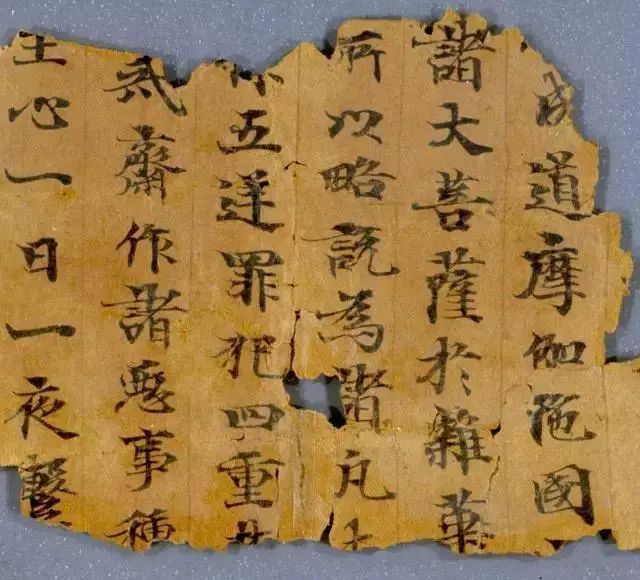 成道摩伽陁國
諸大菩薩於雜華
所以略說為諸凡
作五逆罪犯四重
戒齋作諸惡事種
至心一日一夜繫